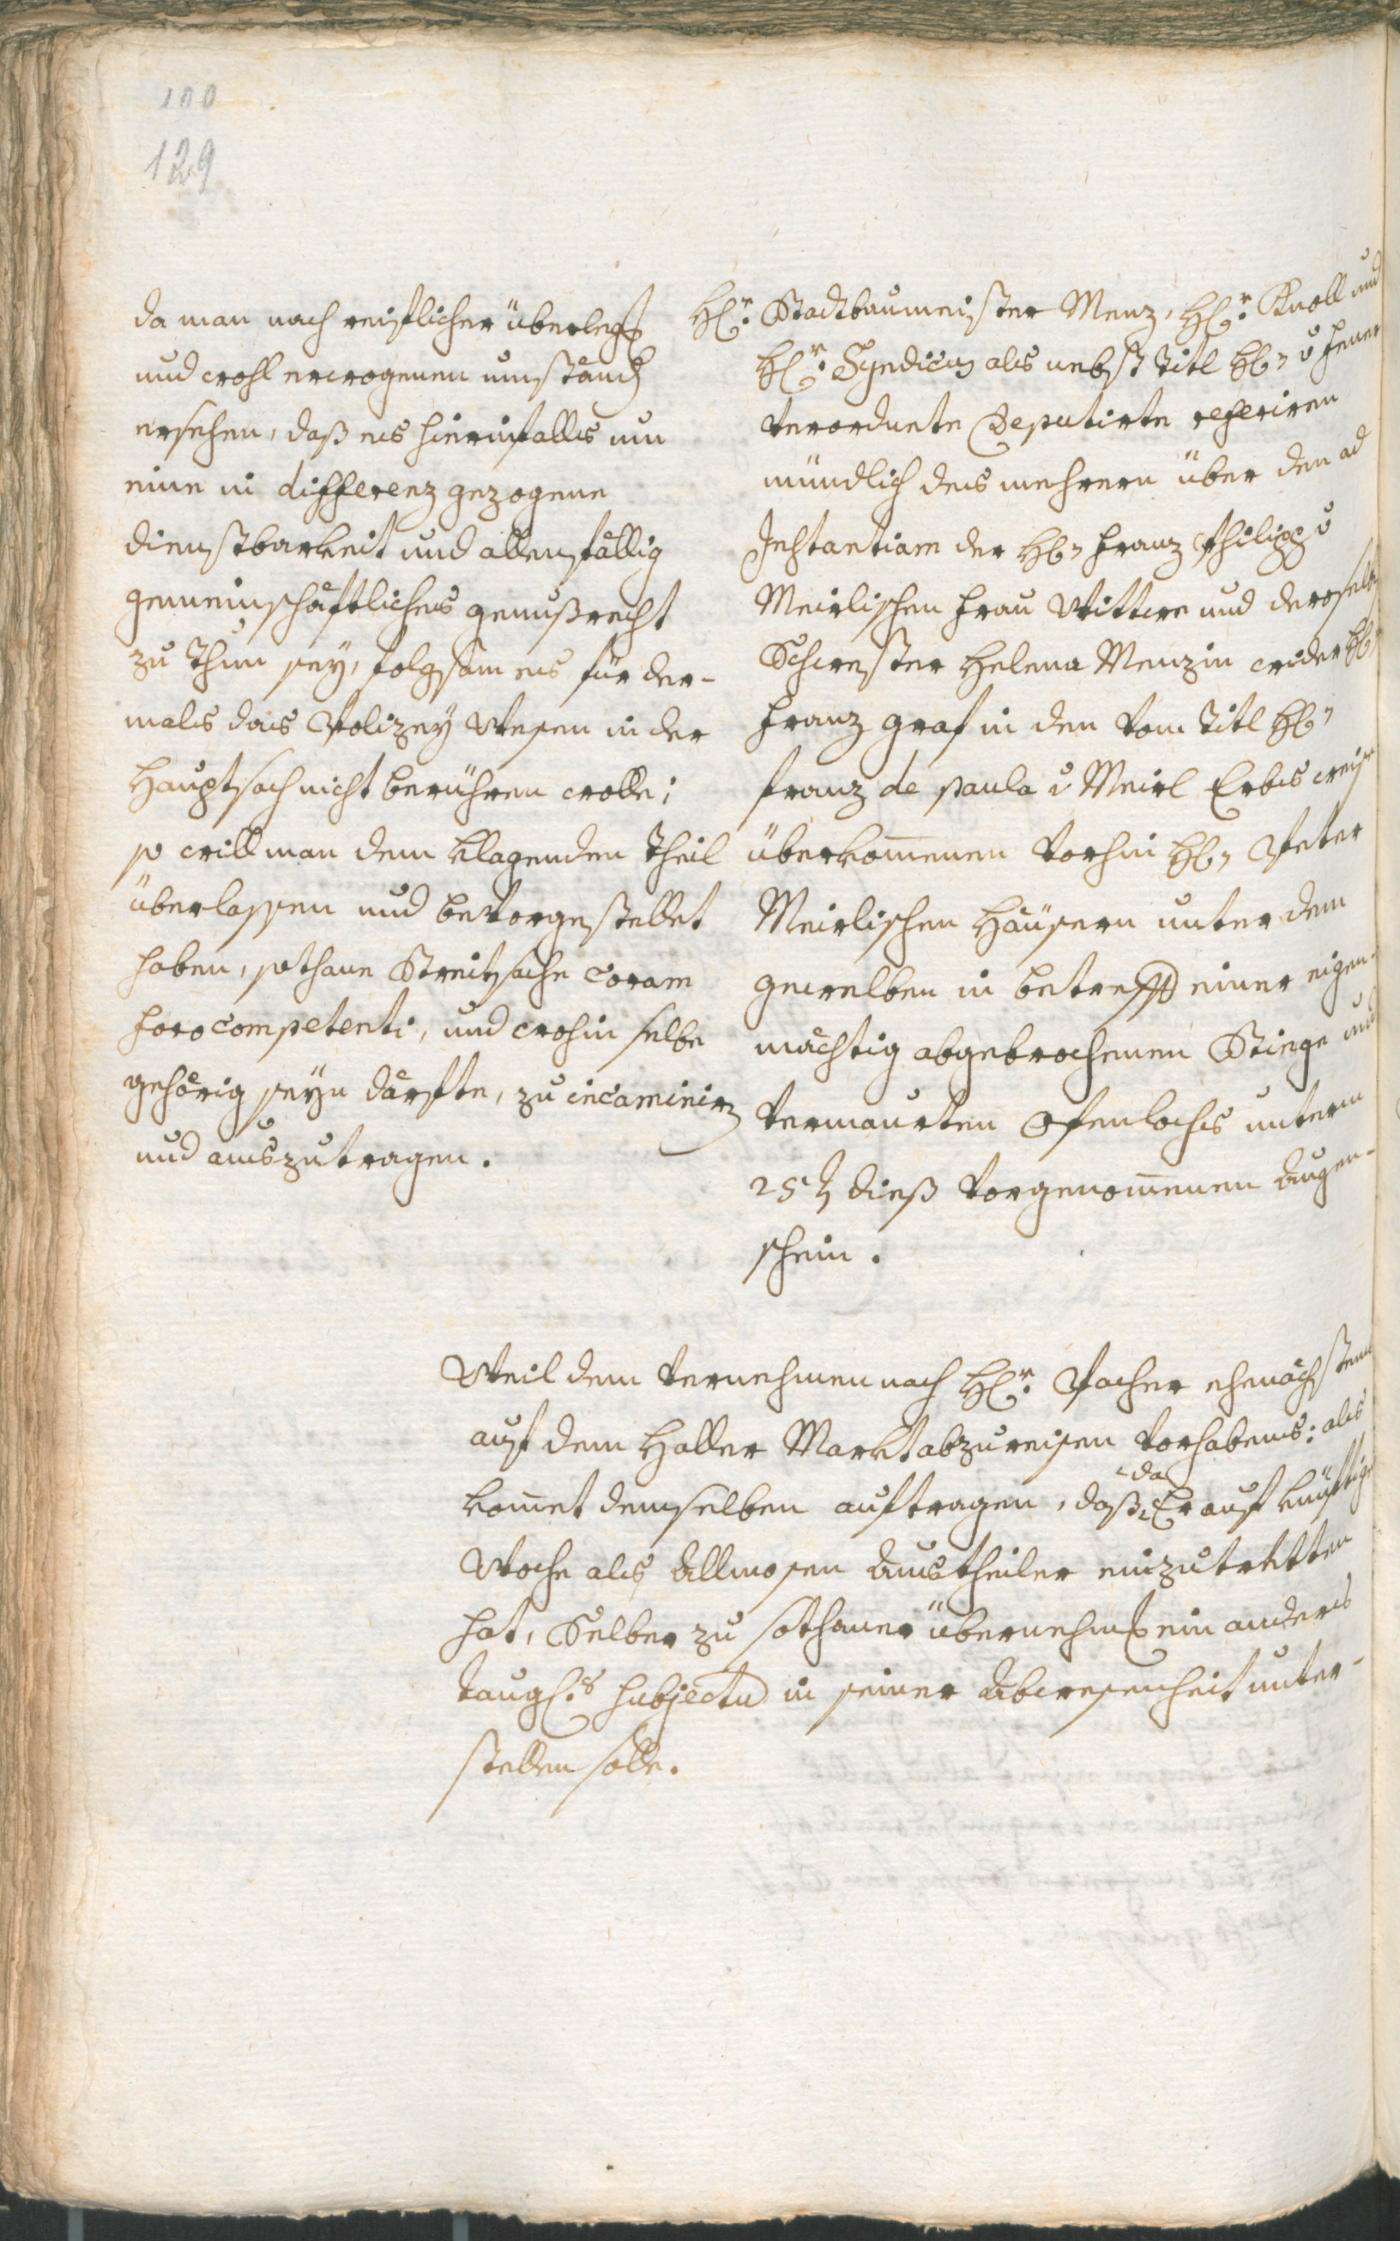 100
129
da man nach reiflicher überlegg
und wohl erwogenen umständ
ersehen, daß es hierinfalls um
eine in differenz gezogene
dienstbarkeit und allenfällig
gemeinschäftliches genußrecht
zu thun sey, folgsam es für der-
mals das Polizey Wesen in der
Hauptsach nicht berühren wolle;
so will man dem klagenden Theil
überlassen und bevorgestellet
haben, sothane Streitsache coram
foro competenti, und wohin selbe
gehörig seyn därfte, zu incaminirn
und auszutragen.
Hr. Stadtbaumeister Menz, Hr. Knoll und
Hr. Syndicus als nebst Titl H: v
verordnete Deputirte referiren
mündlich des mehrern über den ad
Instantiam der H: Franz Philipp v
Meirlischen Frau Wittwe und deroselb
Schwester Helena Menzin wider H:
Franz Graf in den vom Titl H:
Franz de Paula v Meirl Erbsweise
überkommenen vorhin H: Peter
Meirlischen Häusern unter dem
gewelben in betreff einer eigen-
mächtig abgebrochenen Stiege und
vermaurten Ofenlochs unterm
25t dieß vorgenommenen Augen-
schein.
Weil dem vernehmen nach Hr. Pacher ehenächstens
auf dem Haller Markt abzureisen vorhabens: als
kommet demselben auftragen, daß, da Er auf künftige
Woche als Allmosen Austheiler einzutretten
hat, Selber zu sothaner übernehmg ein anders
taugl.s subjectu in seiner Abwesenheit unter-
stellen solle.